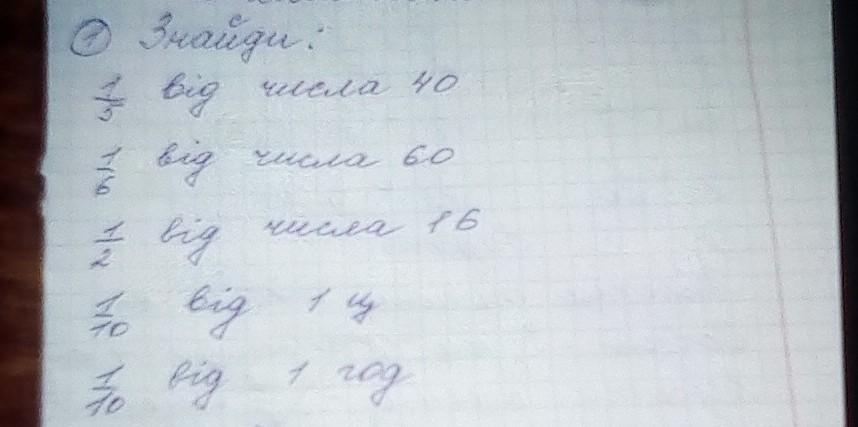 ① Знайди:
1/5 від числа 40
1/6 від числа 60
1/2 від числа 16
1/10 від 1 ц
1/10 від 1 год